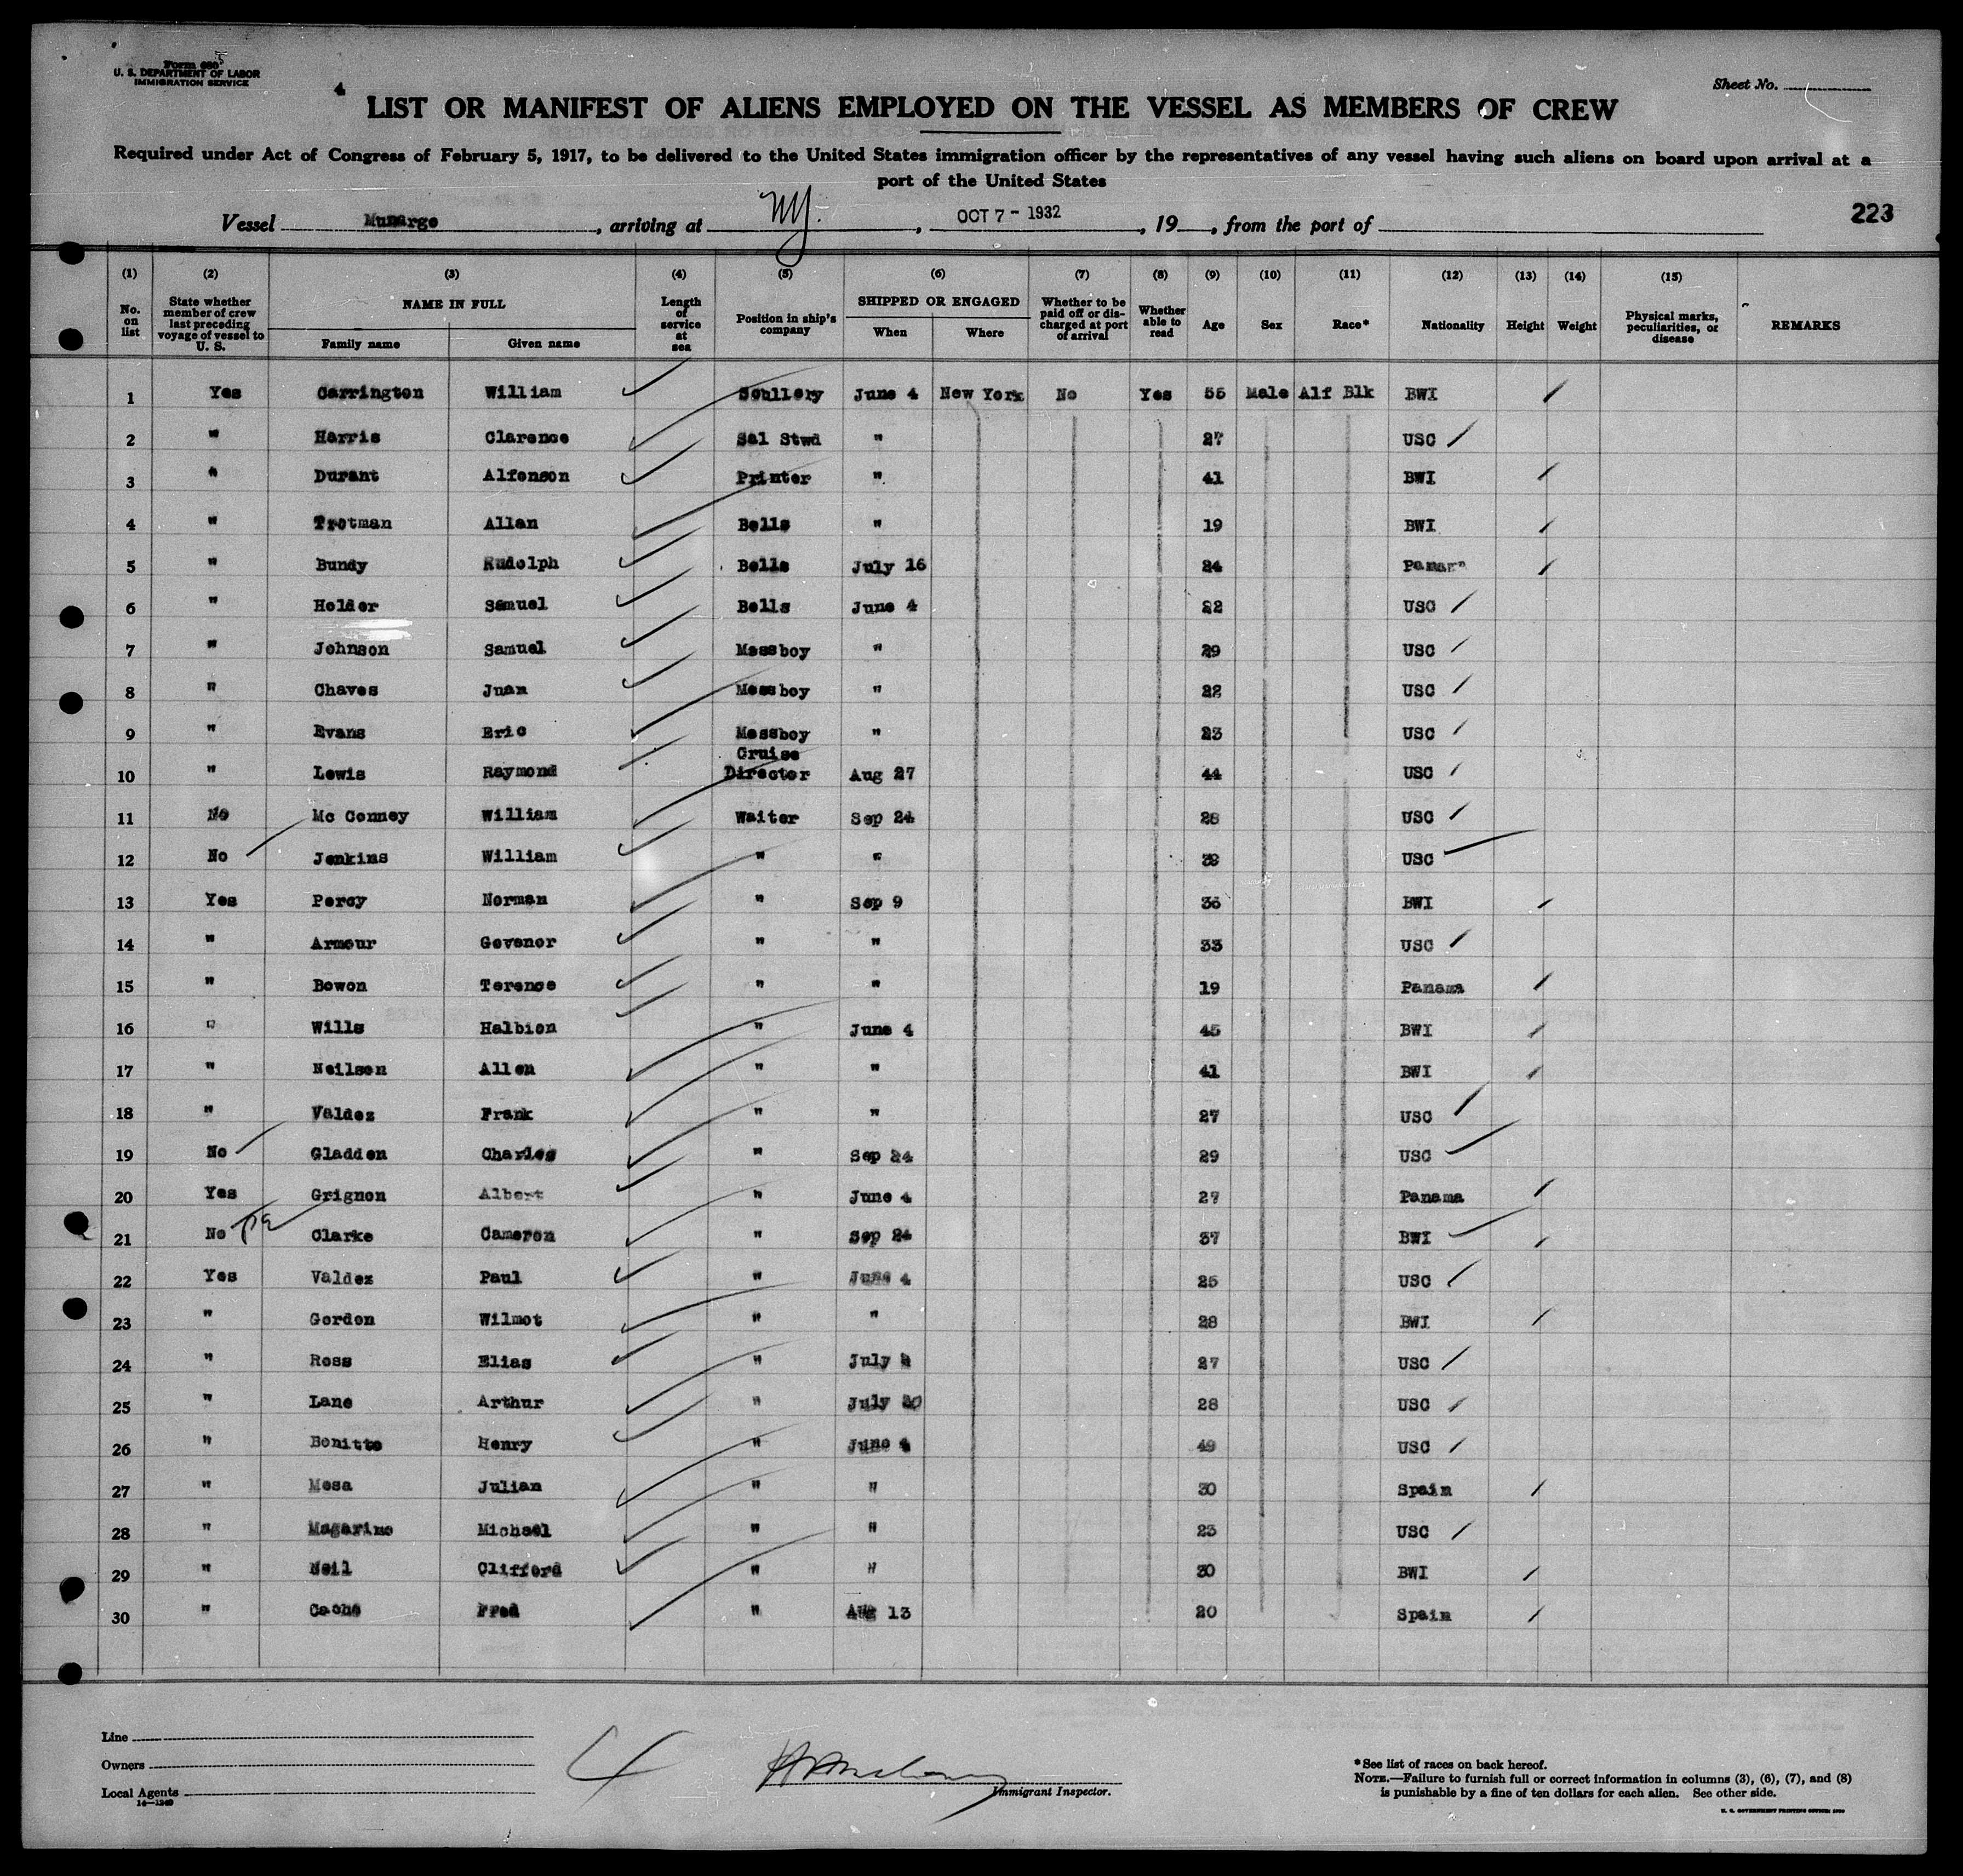 Form 680
U. S. DEPARTMENT OF LABOR
IMMIGRATION SERVICE
Sheet No.
LIST OR MANIFEST OF ALIENS EMPLOYED ON THE VESSEL AS MEMBERS OF CREW
Required under Act of Congress of February 5, 1917, to be delivered to the United States immigration officer by the representatives of any vessel having such aliens on board upon arrival at a
port of the United States
Vessel Munargo, arriving at NY., OCT 7 - 1932, 19, from the port of
223
(1) (2) (3) (4) (5) (6) (7) (8) (9) (10) (11) (12) (13) (14) (15)
No. on list State whether member of crew last preceding voyage of vessel to U. S. NAME IN FULL Family name Given name Length of service at sea Position in ship's company SHIPPED OR ENGAGED When Where Whether to be paid off or discharged at port of arrival Whether able to read Age Sex Race* Nationality Height Weight Physical marks, peculiarities, or disease REMARKS
1 Yes Carrington William Scullery June 4 New York No Yes 55 Male Alf Blk BWI
2 " Harris Clarence Sal Stwd " 27 USC
3 " Durant Alfonson Printer " 41 BWI
4 " Trotman Allan Bells " 19 BWI
5 " Bundy Rudolph Bells July 16 24 Panama
6 " Holder Samuel Bells June 4 22 USC
7 " Johnson Samuel Messboy " 29 USC
8 " Chaves Juan Messboy " 22 USC
9 " Evans Eric Messboy " 23 USC
10 " Lewis Raymond Cruise Director Aug 27 44 USC
11 No Mc Conney William Waiter Sep 24 28 USC
12 No Jenkins William " " USC
13 Yes Percy Norman " Sep 9 36 BWI
14 " Armour Govenor " " 33 USC
15 " Bowon Terence " " 19 Panama
16 " Wills Halbion " June 4 45 BWI
17 " Neilson Allen " " 41 BWI
18 " Valdez Frank " " 27 USC
19 No Gladden Charles " Sep 24 29 USC
20 Yes Grignon Albert " June 4 27 Panama
21 No Clarke Cameron " Sep 24 37 BWI
22 Yes Valdez Paul " June 4 25 USC
23 " Gordon Wilmot " " 28 BWI
24 " Ross Elias " July 27 USC
25 " Lane Arthur " July 30 28 USC
26 " Bonitto Henry " June 4 49 USC
27 " Mesa Julian " " 30 Spain
28 " Magarino Michael " " 23 USC
29 " Neil Clifford " " 30 BWI
30 " Cache Fred " Aug 13 20 Spain
Line
Owners
Local Agents
14—1249
Immigrant Inspector.
*See list of races on back hereof.
NOTE.—Failure to furnish full or correct information in columns (3), (6), (7), and (8)
is punishable by a fine of ten dollars for each alien. See other side.